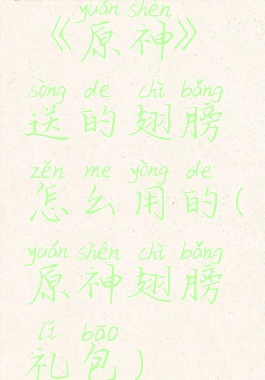 yuán shén
《原神》
sòng de chì bǎng
送的翅膀
zěn me yòng de
怎么用的(
yuán shén chì bǎng
原神翅膀
lǐ bāo
礼包)